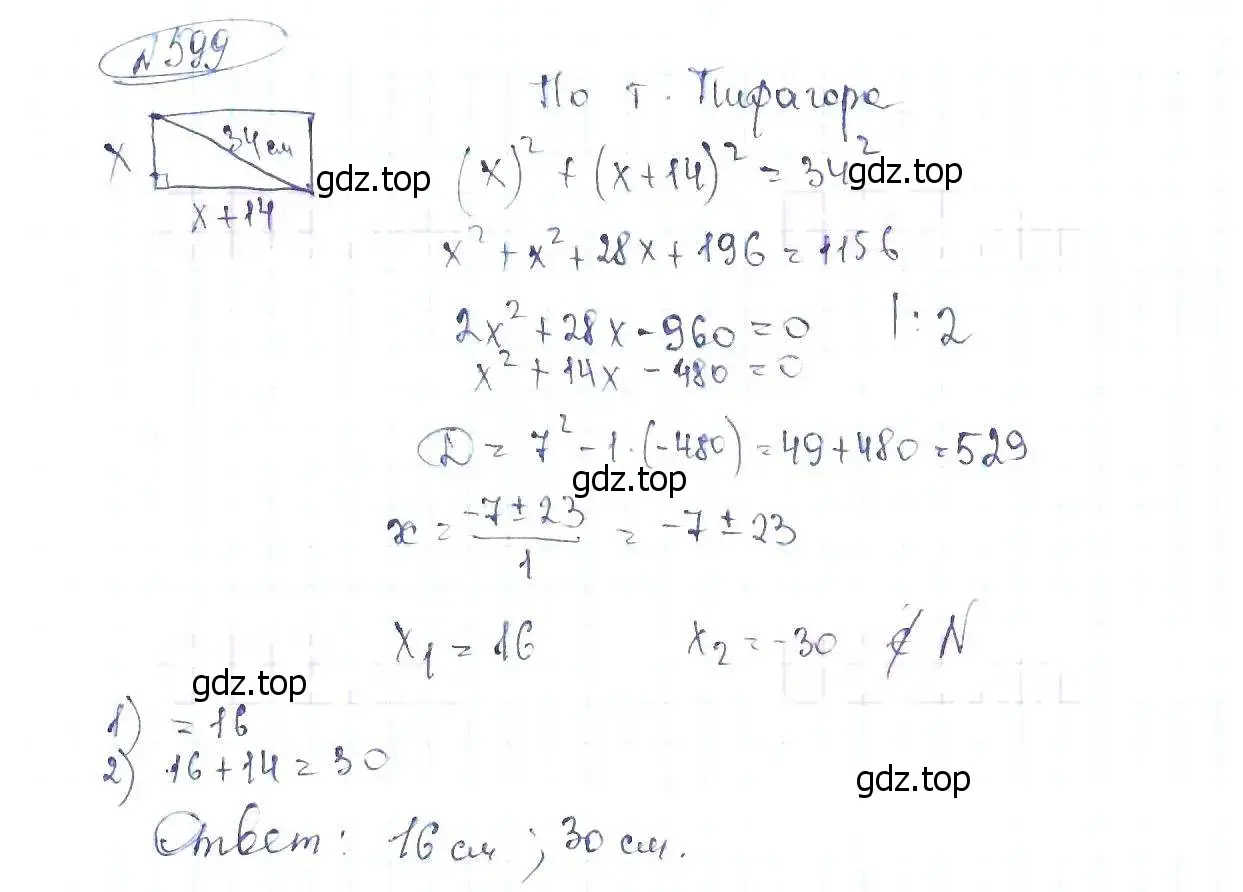 №599
По т. Пифагора
34 см
x
x+14
gdz.top
(x)² + (x+14)² = 34²
gdz.top
x² + x² + 28x + 196 = 1156
2x² + 28x - 960 = 0 |: 2
x² + 14x - 480 = 0
D = 7² - 1·(-480) = 49 + 480 = 529
gdz.top
x = (-7 ± 23)/1 = -7 ± 23
x₁ = 16 x₂ = -30 ∉ N
gdz.top
1) = 16
2) 16 + 14 = 30
gdz.top
Ответ: 16 см ; 30 см.